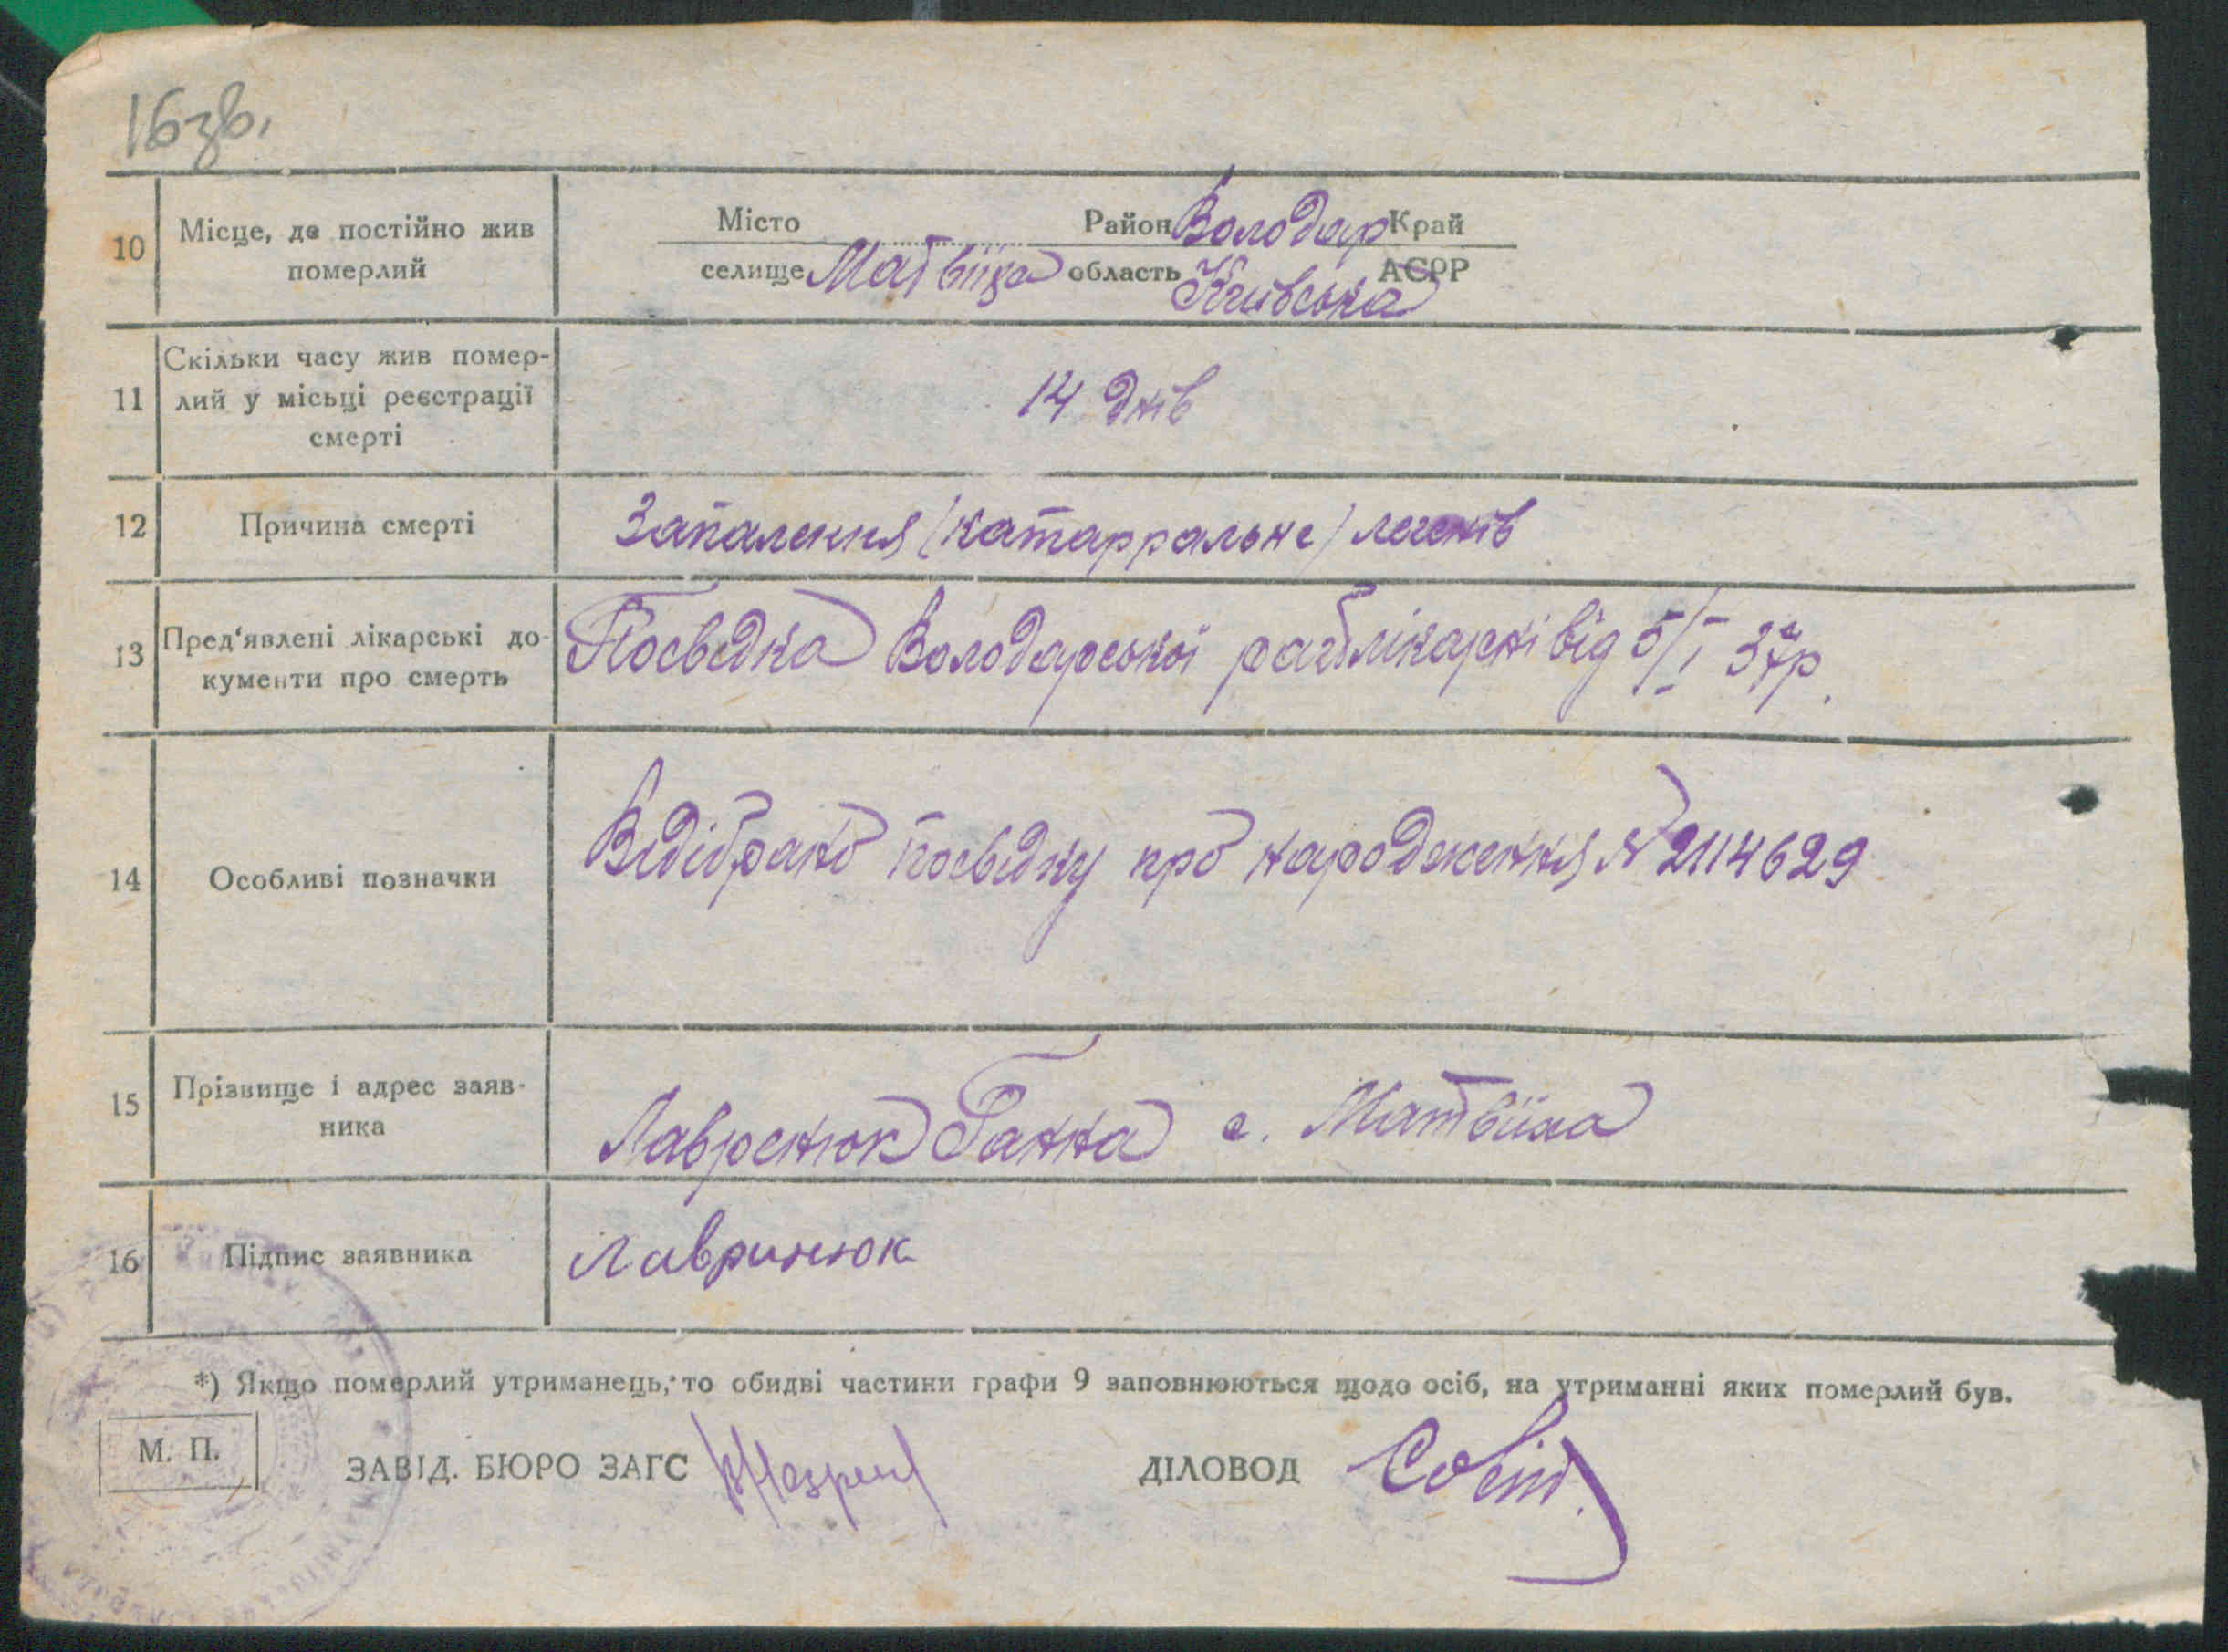 16зв.
10 Місце, де постійно жив померлий
Місто Район Володар Край
селище Матвіїха область Київська АСРР
11 Скільки часу жив помер-
лий у місьці реєстрації
смерті
14 днів
12 Причина смерті Запалення (катарральне) легенів
13 Пред'явлені лікарські до-
кументи про смерть
Посвідка Володарської райлікарні від 5/I 37р.
14 Особливі позначки
Відібрано посвідку про народження № 2114629
15 Прізвище і адрес заяв-
ника
Лавренюк Ганна с. Матвіїха
16 Підпис заявника Лавринюк
*) Якщо померлий утриманець, то обидві частини графи 9 заповнюються щодо осіб, на утриманні яких померлий був.
М. П. ЗАВІД. БЮРО ЗАГС ДІЛОВОД